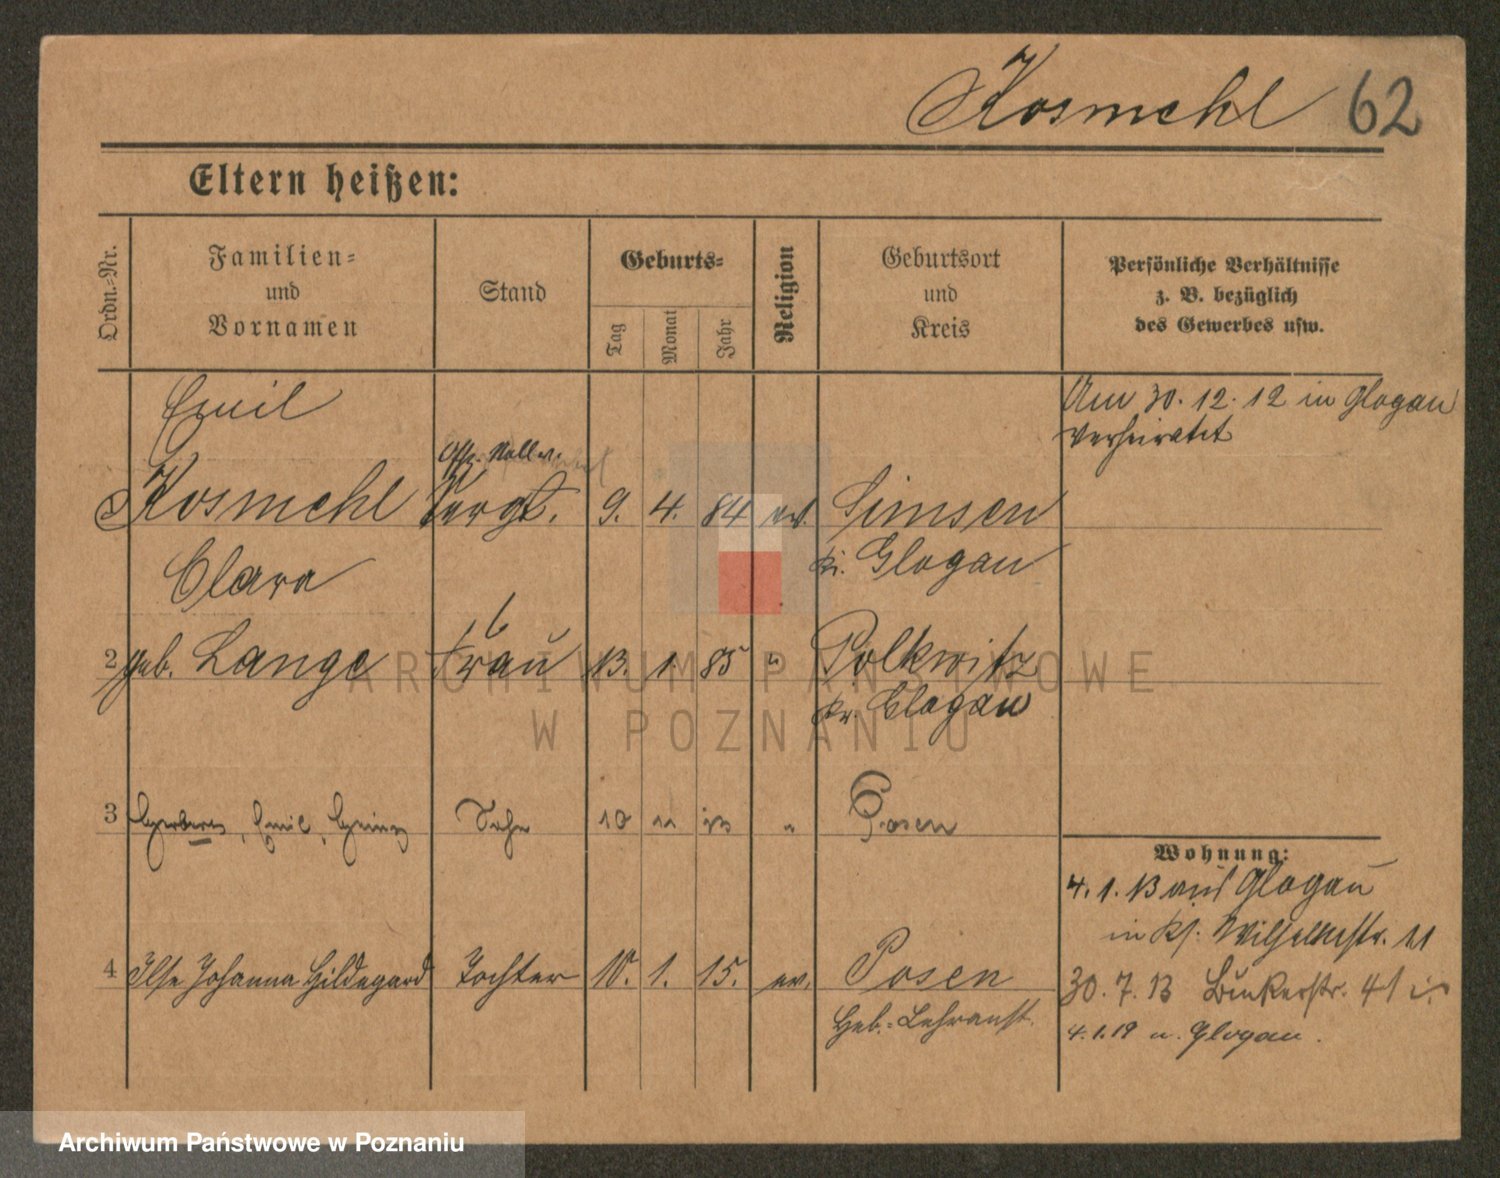 Kosmehl 62
Eltern heißen:
Ordn.-Nr.
Familien-
und
Vornamen
Stand
Geburts-
Tag
Monat
Jahr
Religion
Geburtsort
und
Kreis
Persönliche Verhältnisse
z. B. bezüglich
des Gewerbes usw.
Emil
Am 30. 12. 12 in Glogau
verheiratet
Kosmehl 9. 4. 84 ev. Simsen
Kr. Glogau
Clara
2 geb. Lange Frau 13. 1. 85 " Polkwitz
Kr. Glogau
3 Emil, Heinz Sohn 10 11 13 " Posen
Wohnung:
4. 1. 13 aus Glogau
in Kj. Wilhelmstr. 11
4 Ilse Johanna Hildegard Tochter 10. 1. 15. ev. Posen
30. 7. 13 Bukerstr. 41
Heb.-Lehranst.
4. 1. 19 n. Glogau.
ARCHIWUM PAŃSTWOWE
W POZNANIU
Archiwum Państwowe w Poznaniu